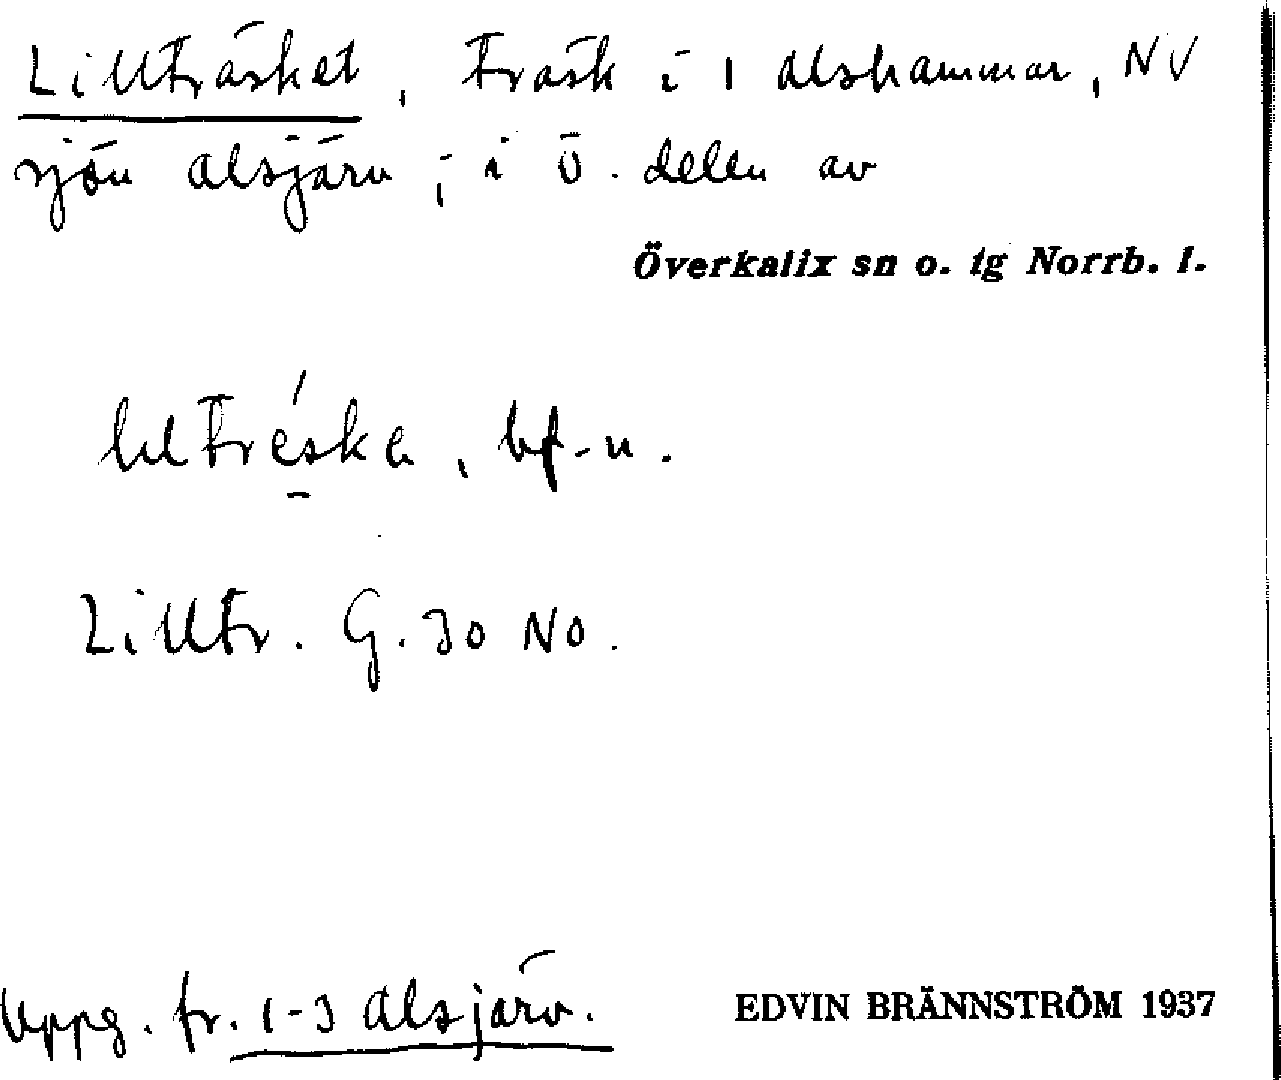 Lillträsket, träsk i 1 Alshammar, NV
sjön Alsjärv; i ö. delen av
Överkalix sn o. tg Norrb. l.
bf-n.
Lilltr. G. 30 NO.
Uppg. fr. 1-3 Alsjärv.
EDVIN BRÄNNSTRÖM 1937